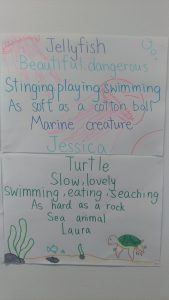 Jellyfish
Beautiful, dangerous
Stinging, playing, swimming
As soft as a cotton ball
Marine creature
Jessica
Turtle
Slow, lovely
Swimming, eating, seaching
As hard as a rock
Sea animal
Laura